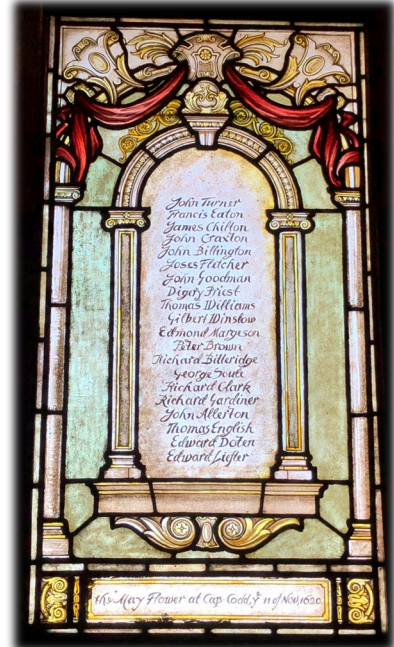 John Turner
Francis Eaton
James Chilton
John Craxton
John Billington
Joses Fletcher
John Goodman
Digery Priest
Thomas Williams
Gilbert Winslow
Edmond Margeson
Peter Brown
Richard Bitteridge
George Soule
Richard Clark
Richard Gardiner
John Allerton
Thomas English
Edward Doten
Edward Liester
the May Flower at Cap Codd, yᵉ 11 of Nov, 1620